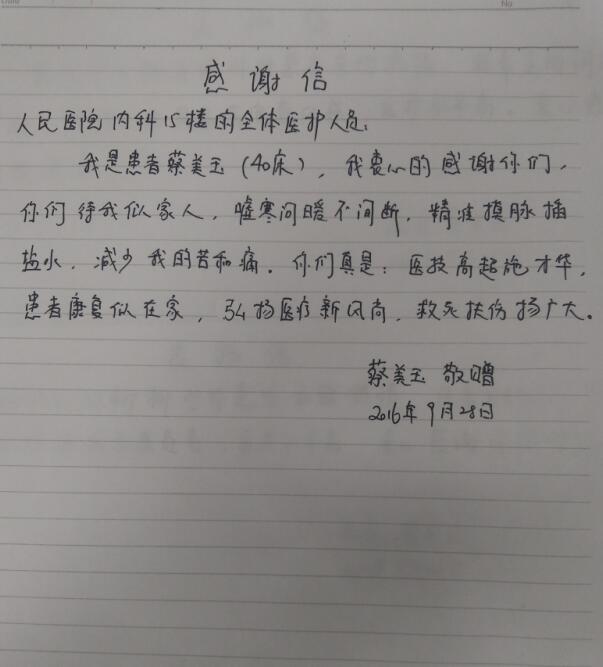 No
感谢信
人民医院内科15楼的全体医护人员:
我是患者蔡美玉(40床),我衷心的感谢你们,
你们待我似家人,嘘寒问暖不间断,精准摸脉插
盐水,减少我的苦和痛。你们真是:医技高超施才华,
患者康复似在家,弘扬医疗新风尚,救死扶伤扬广大。
蔡美玉 敬赠
2016年9月28日